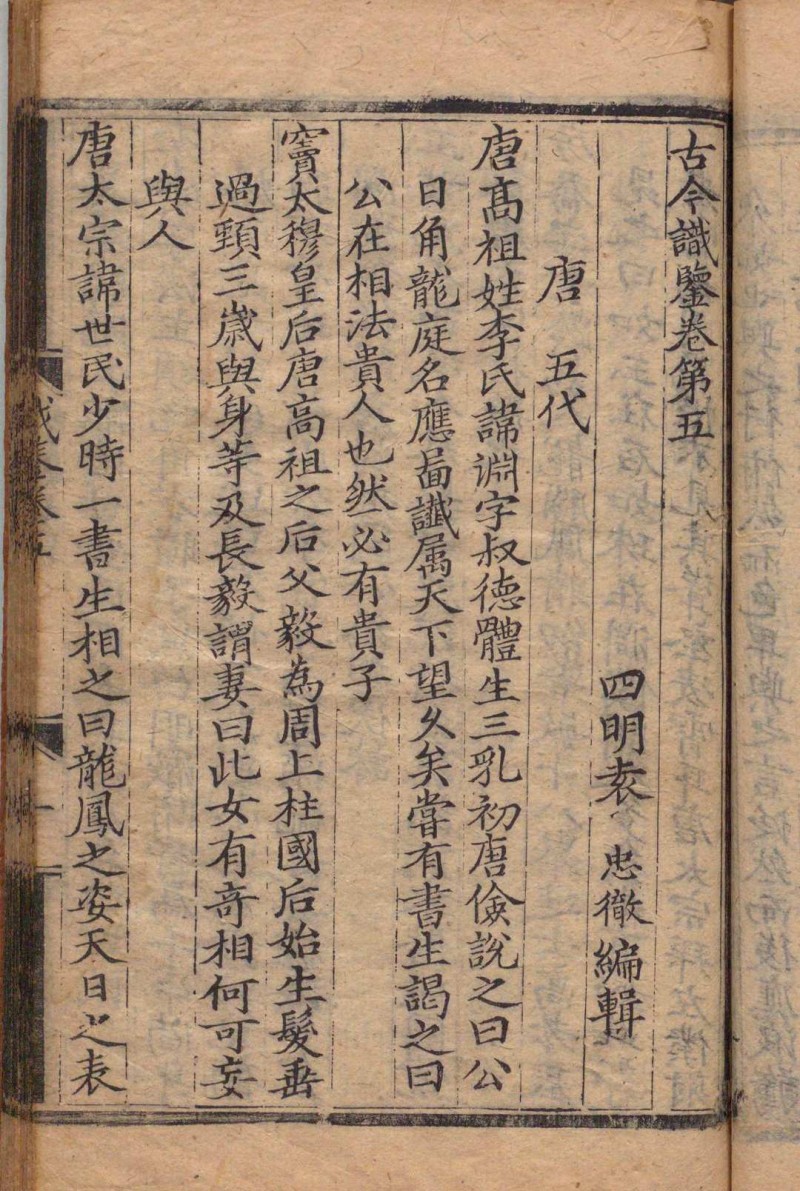 古今識鑒卷第五
四明袁忠徹編輯
唐 五代
唐髙祖姓李氏諱淵字叔德體生三乳初唐儉說之曰公
日角龍庭名應啚讖属天下望久矣嘗有書生謁之曰
公在相法貴人也然必有貴子
竇太穆皇后唐高祖之后父毅為周上柱國后始生髮垂
過頸三歲與身等及長毅謂妻曰此女有奇相何可妄
與人
唐太宗諱世民少時一書生相之曰龍鳳之姿天日之表